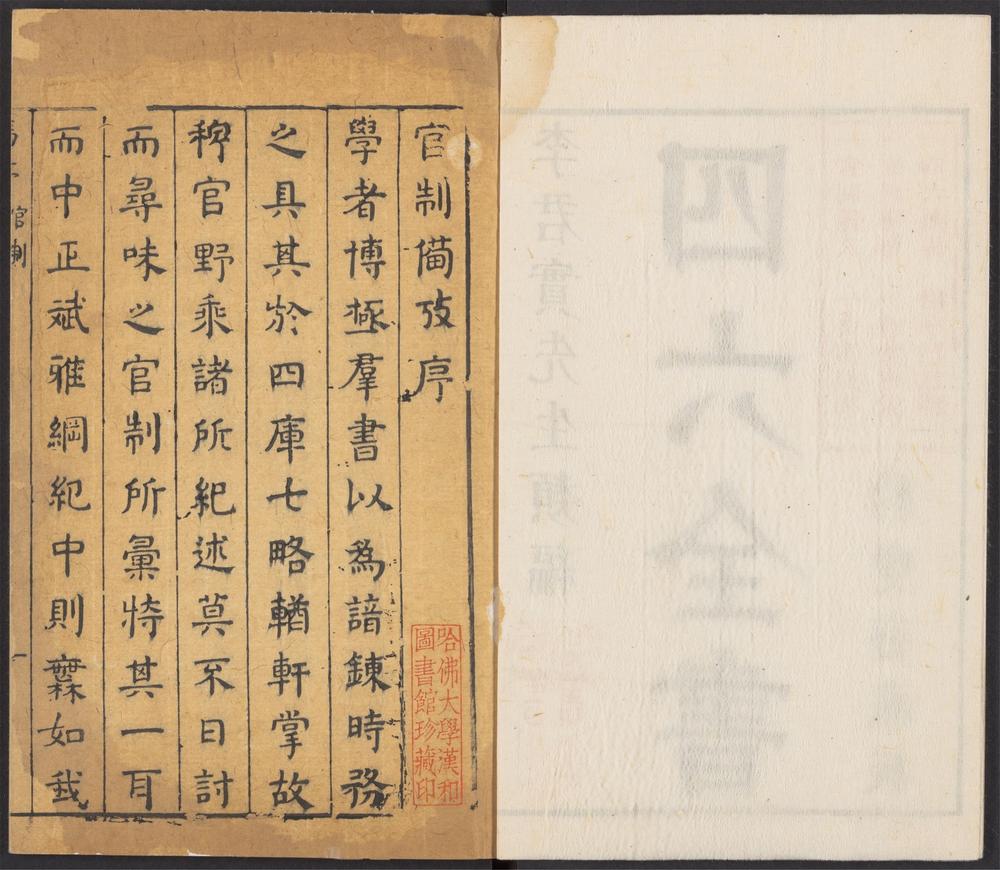 官制備攷序
學者博極羣書以為諳鍊時務
之具其於四庫七略輶軒掌故
稗官野乘諸所紀述莫不日討
而尋味之官制所彙特其一耳
而中正斌雅綱紀中則無如我
官制
一
哈佛大學漢和
圖書館珍藏印
李君實先生類編
四六全書